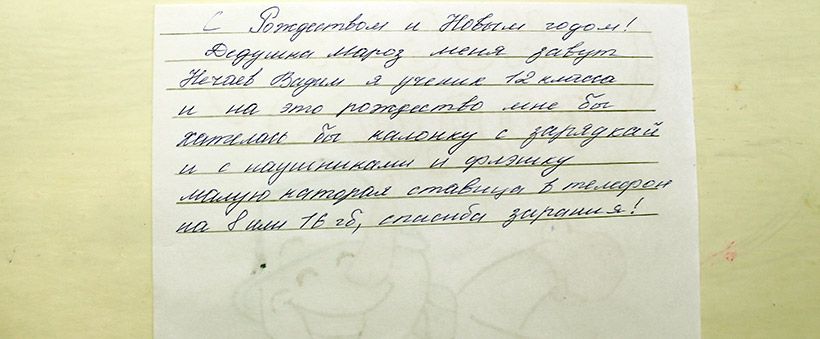 С Рождеством и Новым годом!
Дедушка мароз меня завут
Нечаев Вадим я ученик 12 класса
и на это рождество мне бы
хателась бы калонку с зарядкай
и с наушниками и флэшку
малую каторая ставица в телефон
на 8 или 16 гб, спасиба зарания!